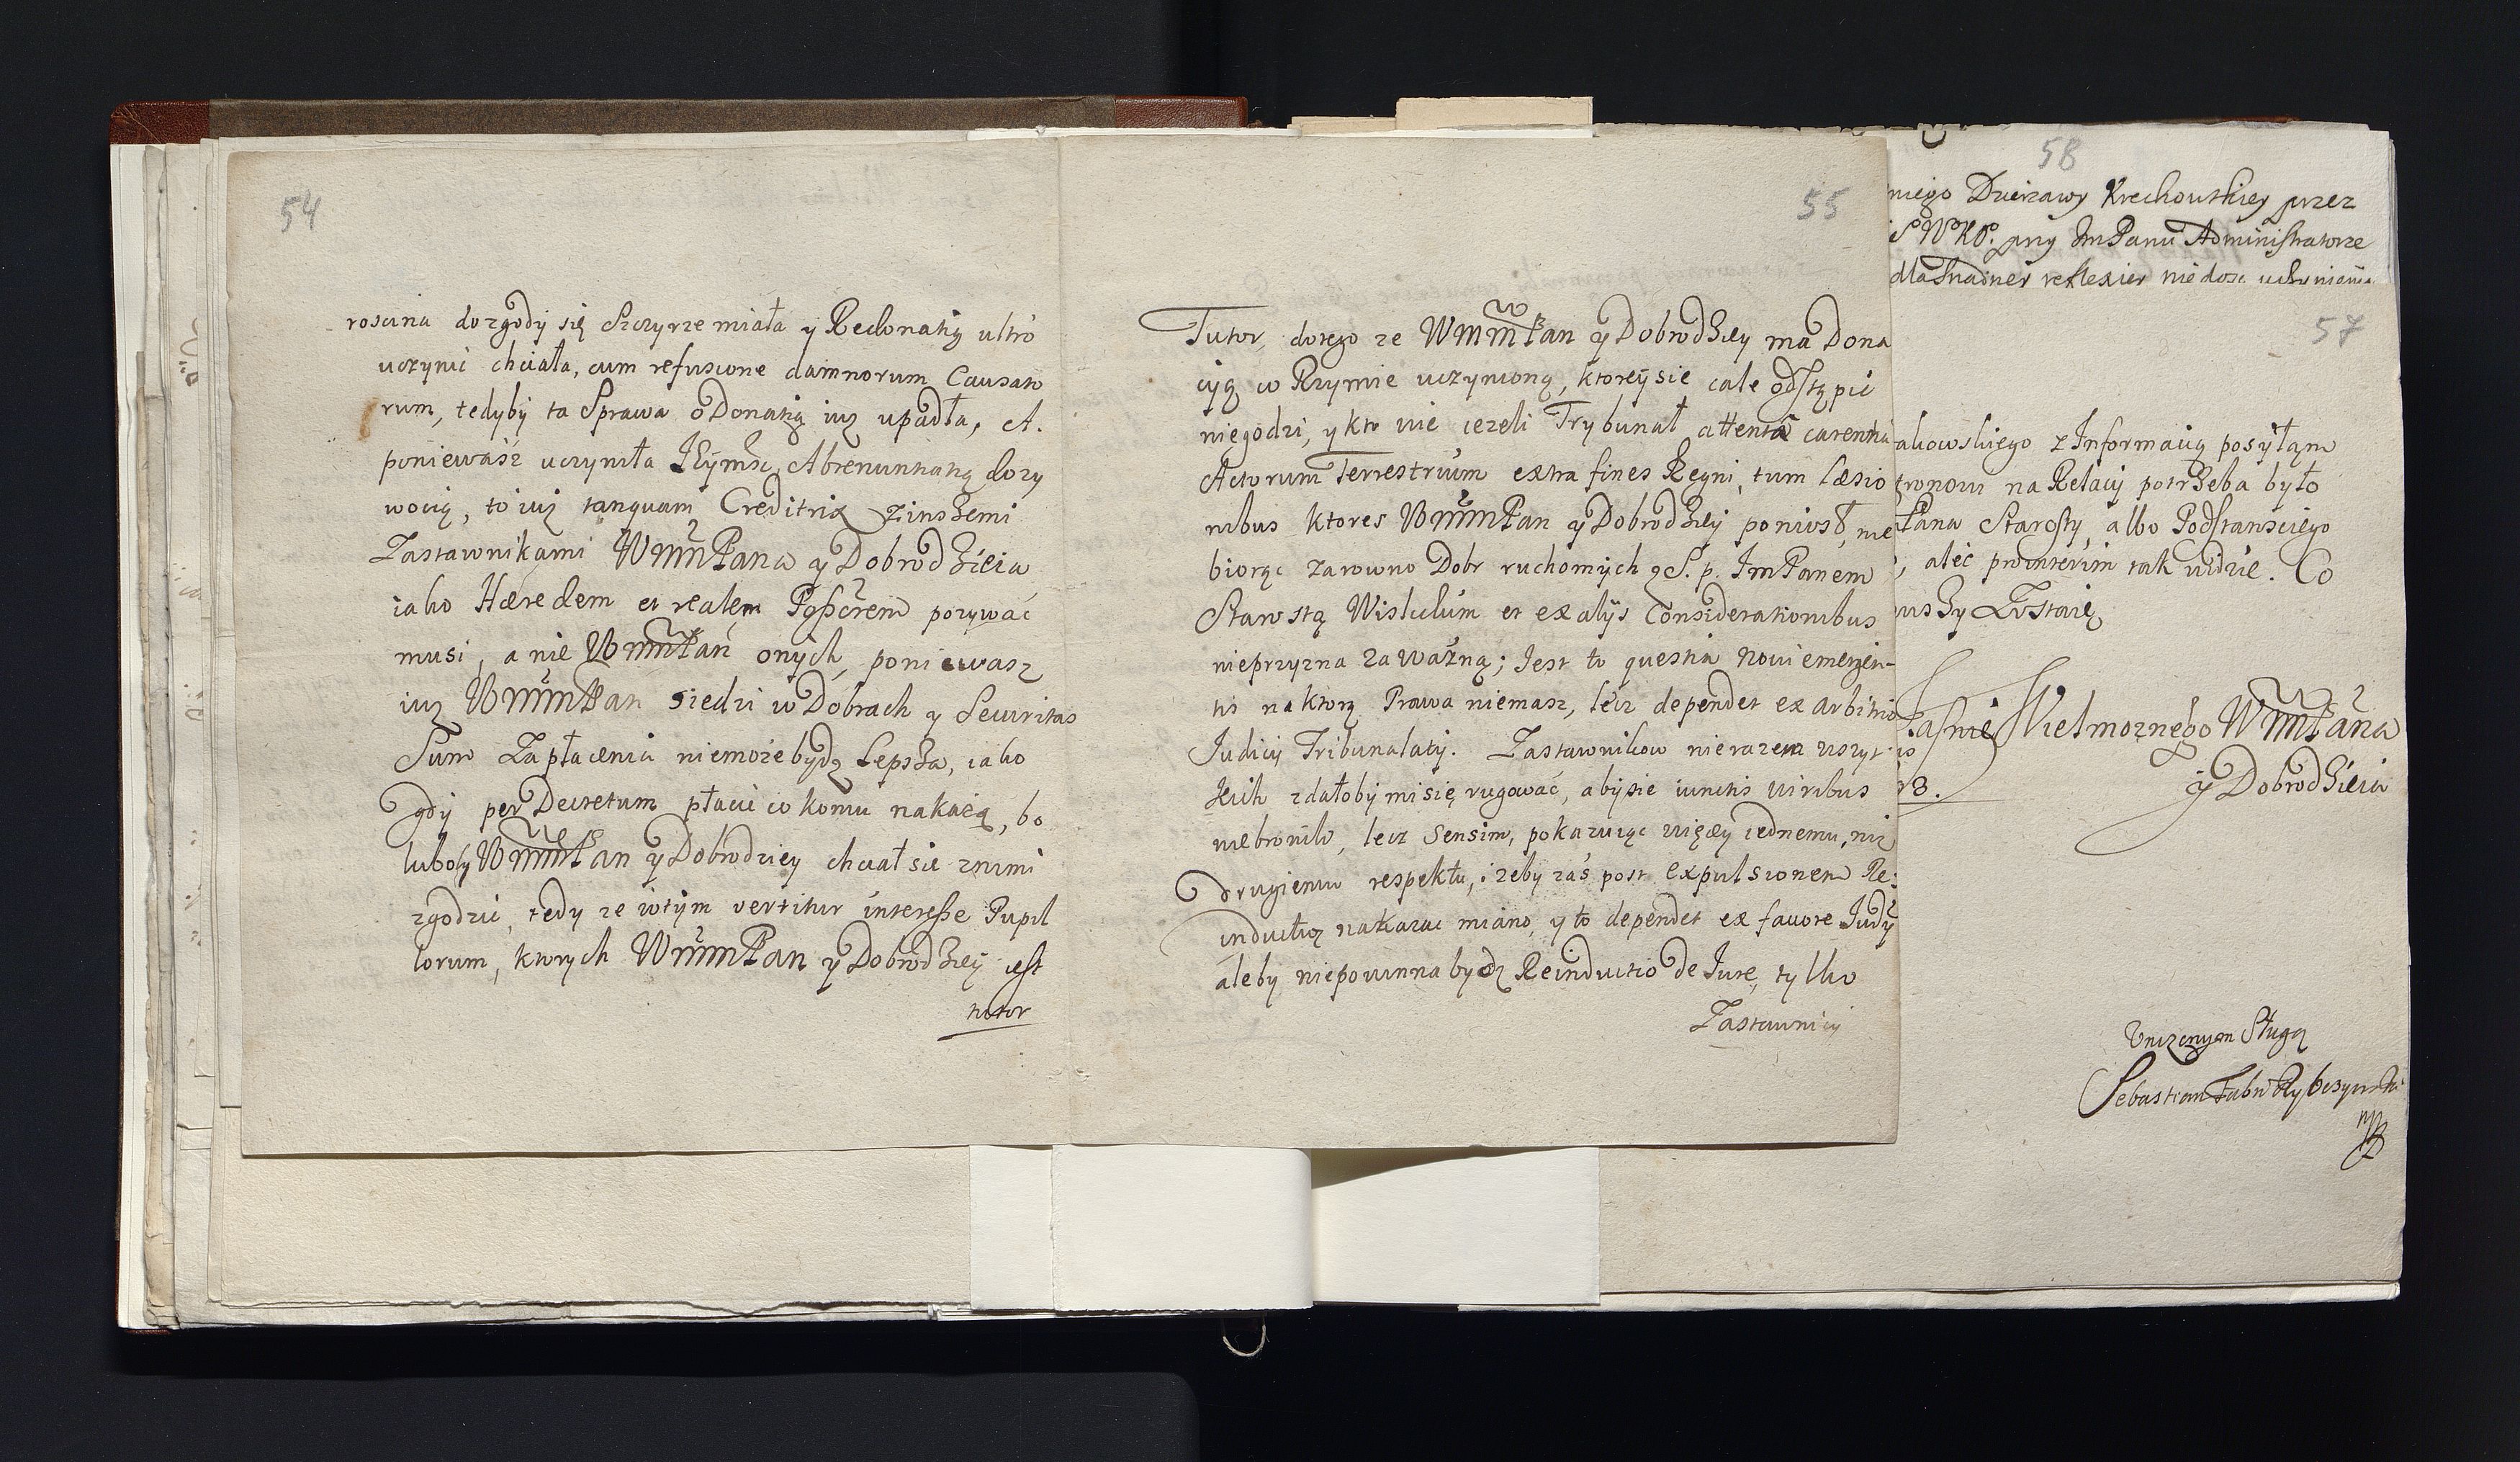 54
roscina do zgody się szczyrze miała y Redonatią ultro
uczynić chciała, cum refusione damnorum Causato
rum, tedyby ta Sprawa o Donatią iuz upadła, A.
poniewasz uczyniła IEymść Abrenuntiatią dozy
wocią, to iuz tanquam Creditrix z inszemi
Zastawnikami WMMPana y Dobrodzieia
iako Hæredem et realem Possorem pozywać
musi, a nie WMMPan onych, poniewasz
iuz WMMPan siedzi w Dobrach y Securitas
Sum Zapłacenia niemoze bydz lepsza, iako
gdy per Decretum płacić co komu nakażą, bo
luboby WMMPan y Dobrodziey chciał sie znimi
zgodzić, tedy ze wtym vertitur interesse Pupil
lorum, ktorych WMMPan y Dobrodziey iest
tutor
55
Tutor, dotego ze WMMPan y Dobrodziey ma Dona
cyą w Rzymie uczynioną, ktorey sie cale odstąpić
niegodzi, y kto wie iezeli Trybunał attenta carentia
Actorum Terrestrium extra fines Regni, tum læsio
nibus ktores WMMPan y Dobrodziey poniosł, nie
biorąc zarowno Dobr ruchomych z S. p. ImPanem
Starostą Wislickim et ex alijs Considerationibus
nieprzyzna za ważną; Jest to questia novi emergen-
tis na ktorą Prawa niemasz, lecz dependet ex arbitrio
Judicij Tribunalatij. Zastawnikow nierazem wszyt
kich zdałoby mi się rugować, aby sie iunctis viribus
niebronili, lecz sensim, pokazuiąc więcy iednemu, niz
drugiemu respektu, i zeby zaś post expulsionem Re:
inductią nakazac miano, y to dependet ex favore Judy
aleby niepowinna bydz Reinductio de Jure, tylko
Zastawnicy
58
niego Dzierzawy Krechowskiey przez
S WKP. przy ImPanu Administratorze
57
akowskiego z Informacią posyłąm
tronowi na Relacij potrzeba było
Pana Starosty, albo Podstarosciego
, aleć prointerim tak widzie. Co
uszy Zostaię
Jasnie Wielmoznego WMMPana
y Dobrodzieia
3.
Unizonym Sługą
Sebastian Rybczynski
mp